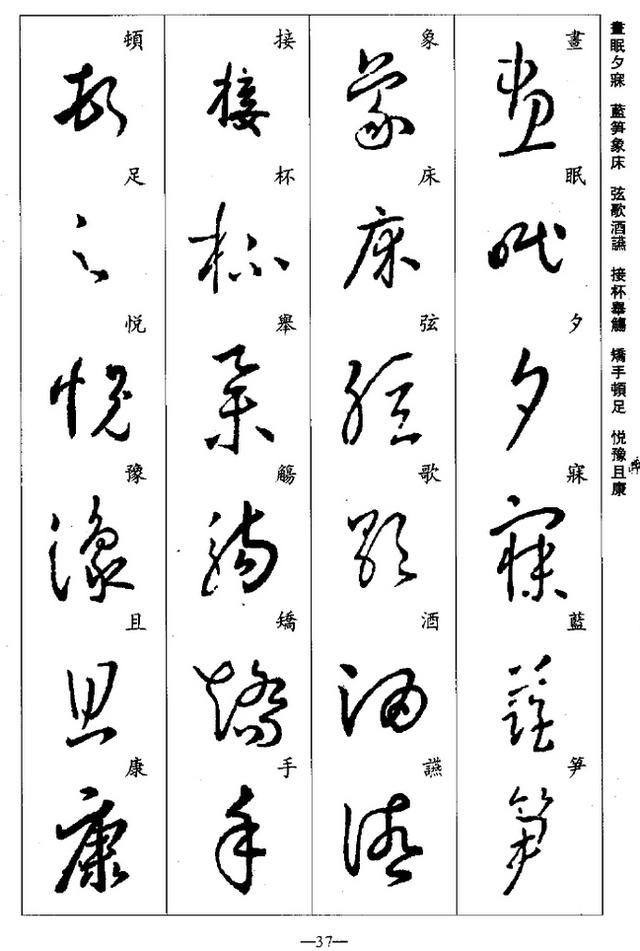 晝眠夕寐 藍笋象床 弦歌酒讌 接杯舉觴 矯手頓足 悦豫且康
晝眠夕寐藍笋
象床弦歌酒讌
接杯舉觴矯手
頓足悦豫且康
—37—